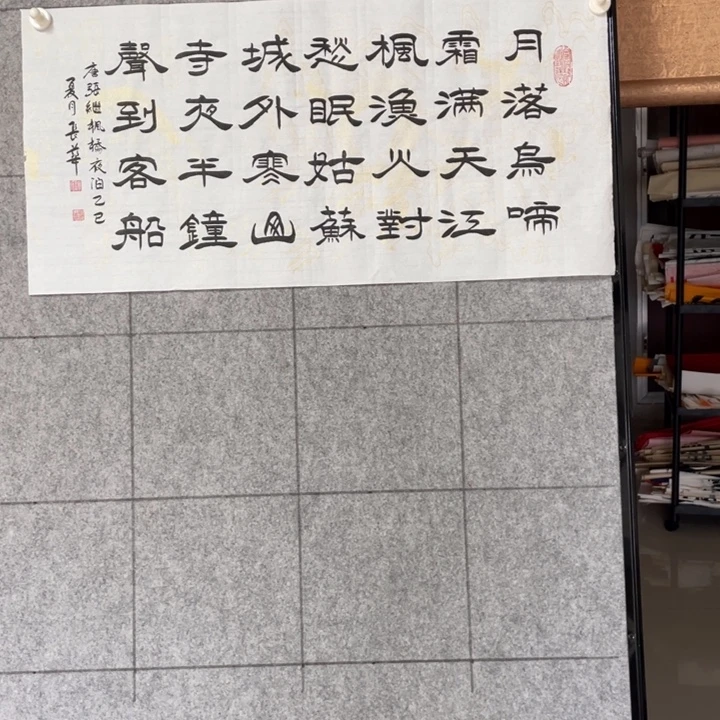 月落烏啼
霜满天江
楓漁火對
愁眠姑蘇
城外寒山
寺夜半鐘
聲到客船
唐張繼楓橋夜泊乙巳
夏月長華